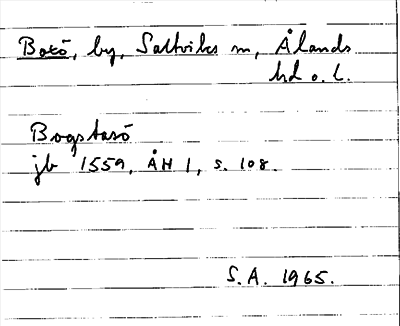 Boxö, by, Saltviks sn, Ålands
hd o. l.
Bogstasö
jb 1559, ÅH 1, s. 108.
S.A. 1965.